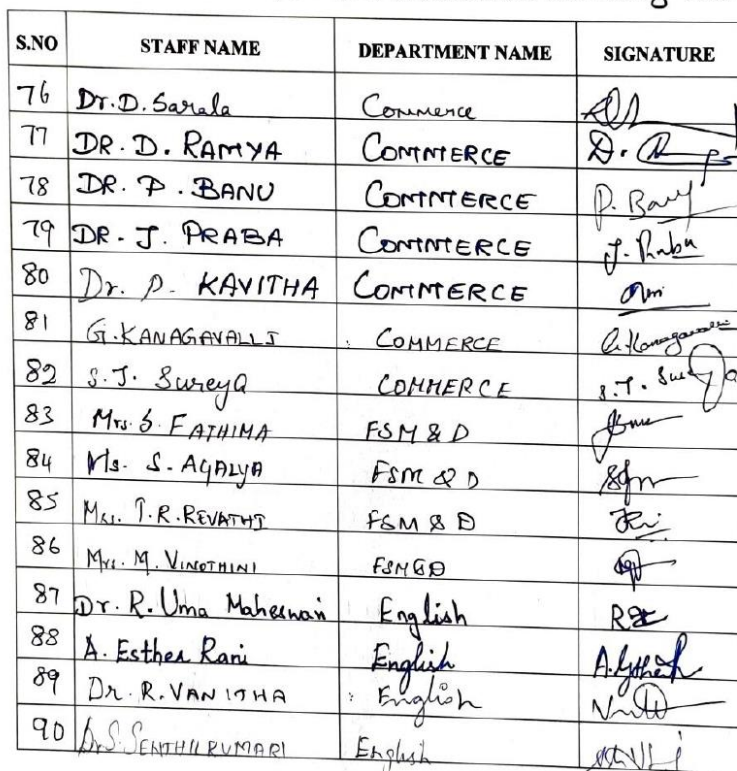 S.NO STAFF NAME DEPARTMENT NAME SIGNATURE
76 Dr. D. Sarala Commerce
77 DR. D. RAMYA COMMERCE D.
78 DR. P. BANU COMMERCE P. Banu
79 DR. J. PRABA COMMERCE J. Praba
80 Dr. P. KAVITHA COMMERCE
81 G. KANAGAVALLI COMMERCE G. Kanagavalli
82 S.J. Sureya COMMERCE S.J. Sureya
83 Mrs. S. FATHIMA FSM & D
84 Ms. S. AGALYA FSM & D
85 Mrs. T.R. REVATHI FSM & D
86 Mrs. M. VINOTHINI FSM & D
87 Dr. R. Uma Maheswari English
88 A. Esther Rani English A. Esther
89 Dr. R. VANITHA English
90 Dr. S. SENTHILKUMARI English